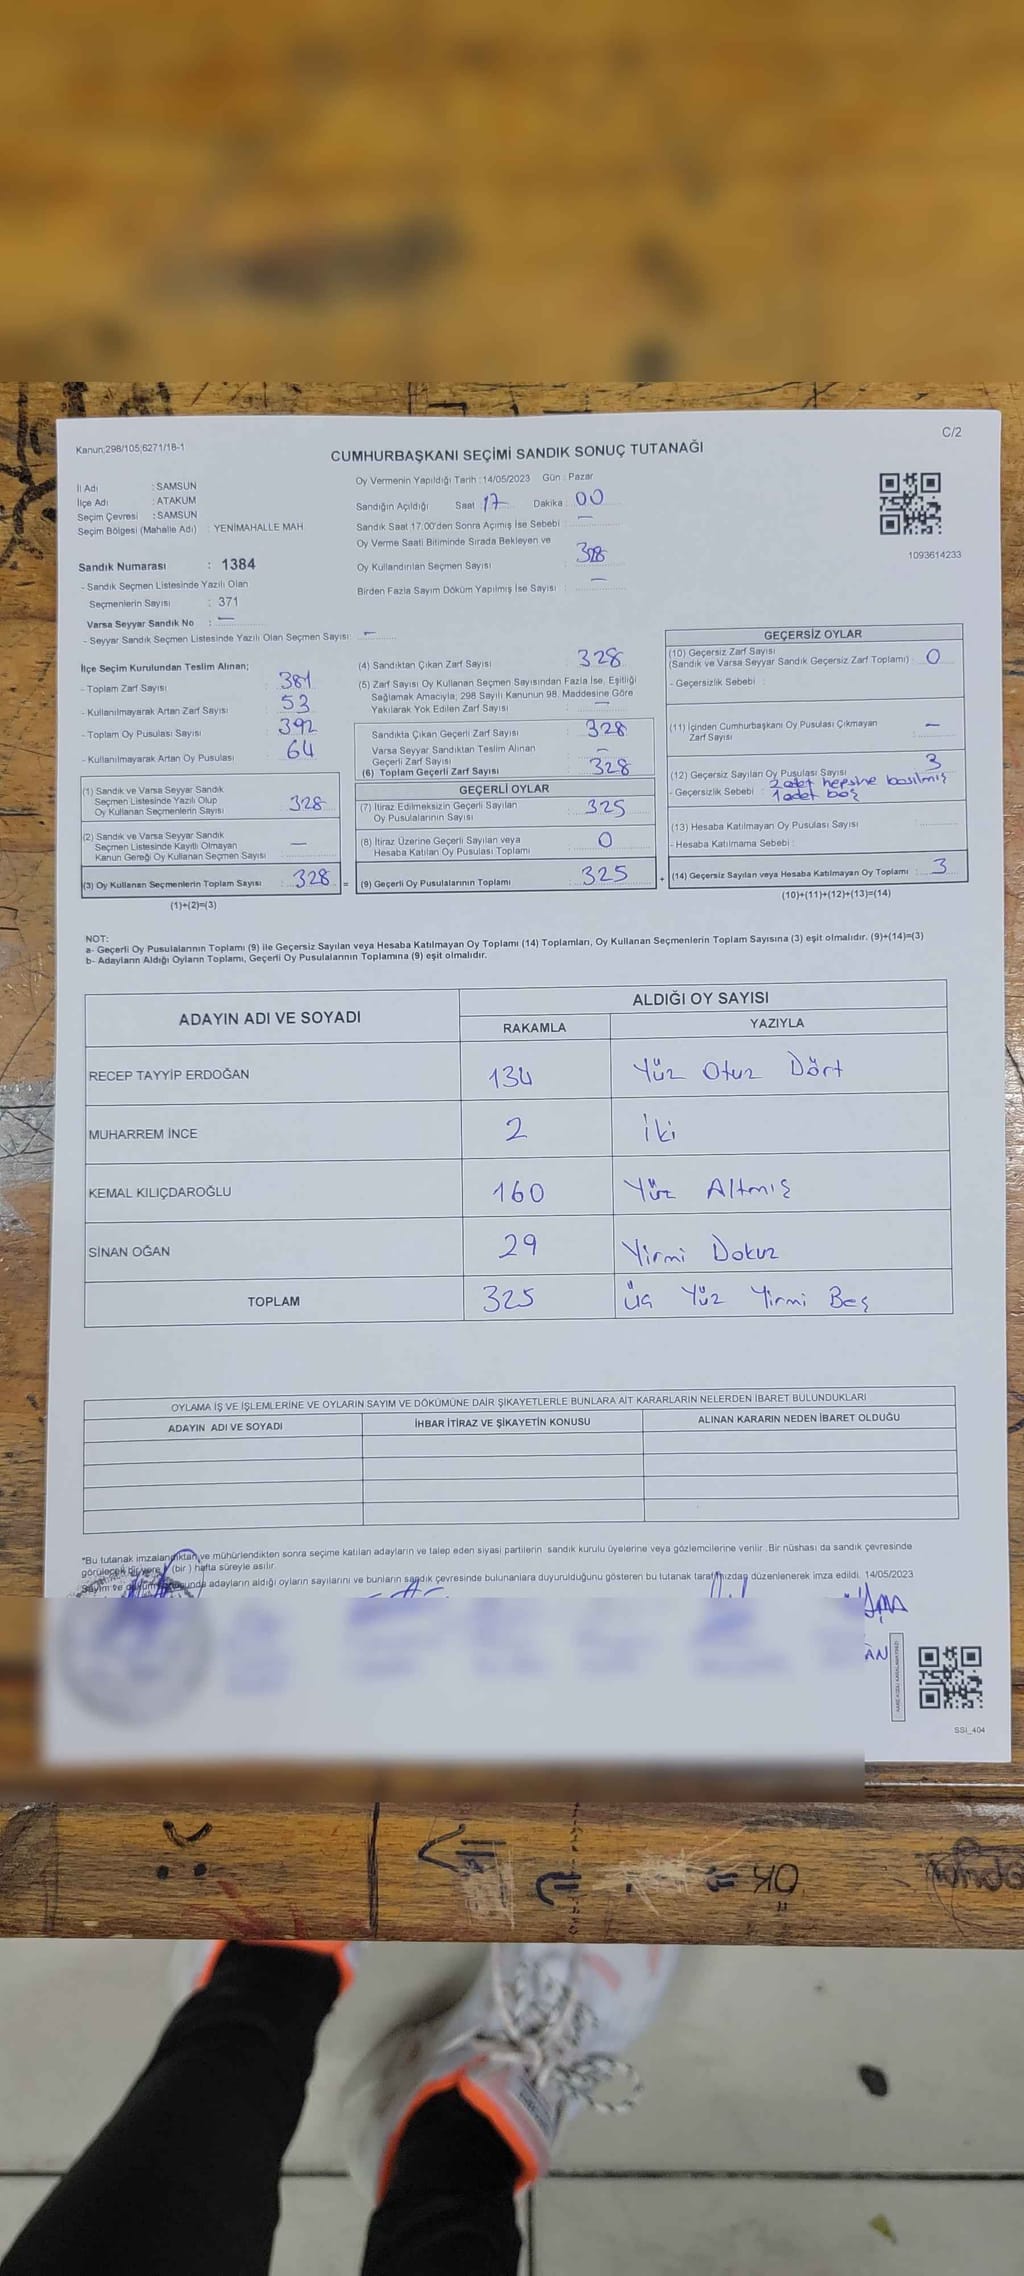 Kanun;298/105;6271/18-1
C/2
CUMHURBAŞKANI SEÇİMİ SANDIK SONUÇ TUTANAĞI
İl Adı : SAMSUN
İlçe Adı : ATAKUM
Seçim Çevresi : SAMSUN
Seçim Bölgesi (Mahalle Adı) : YENİMAHALLE MAH
Sandık Numarası : 1384
- Sandık Seçmen Listesinde Yazılı Olan
Seçmenlerin Sayısı : 371
Varsa Seyyar Sandık No : —
- Seyyar Sandık Seçmen Listesinde Yazılı Olan Seçmen Sayısı: —
Oy Vermenin Yapıldığı Tarih : 14/05/2023 Gün : Pazar
Sandığın Açıldığı Saat 17 Dakika 00
Sandık Saat 17.00'den Sonra Açımış İse Sebebi : —
Oy Verme Saati Bitiminde Sırada Bekleyen ve
Oy Kullandırılan Seçmen Sayısı :
Birden Fazla Sayım Döküm Yapılmış İse Sayısı : —
1093614233
İlçe Seçim Kurulundan Teslim Alınan;
- Toplam Zarf Sayısı : 381
- Kullanılmayarak Artan Zarf Sayısı : 53
- Toplam Oy Pusulası Sayısı : 392
- Kullanılmayarak Artan Oy Pusulası : 64
(1) Sandık ve Varsa Seyyar Sandık
Seçmen Listesinde Yazılı Olup
Oy Kullanan Seçmenlerin Sayısı : 328
(2) Sandık ve Varsa Seyyar Sandık
Seçmen Listesinde Kayıtlı Olmayan
Kanun Gereği Oy Kullanan Seçmen Sayısı : —
(3) Oy Kullanan Seçmenlerin Toplam Sayısı : 328 =
(1)+(2)=(3)
(4) Sandıktan Çıkan Zarf Sayısı : 328
(5) Zarf Sayısı Oy Kullanan Seçmen Sayısından Fazla İse, Eşitliği
Sağlamak Amacıyla; 298 Sayılı Kanunun 98. Maddesine Göre
Yakılarak Yok Edilen Zarf Sayısı : —
Sandıkta Çıkan Geçerli Zarf Sayısı : 328
Varsa Seyyar Sandıktan Teslim Alınan
Geçerli Zarf Sayısı : —
(6) Toplam Geçerli Zarf Sayısı : 328
GEÇERLİ OYLAR
(7) İtiraz Edilmeksizin Geçerli Sayılan
Oy Pusulalarının Sayısı : 325
(8) İtiraz Üzerine Geçerli Sayılan veya
Hesaba Katılan Oy Pusulası Toplamı : 0
(9) Geçerli Oy Pusulalarının Toplamı : 325 +
GEÇERSİZ OYLAR
(10) Geçersiz Zarf Sayısı
(Sandık ve Varsa Seyyar Sandık Geçersiz Zarf Toplamı) : 0
- Geçersizlik Sebebi :
(11) İçinden Cumhurbaşkanı Oy Pusulası Çıkmayan
Zarf Sayısı : —
(12) Geçersiz Sayılan Oy Pusulası Sayısı : 3
- Geçersizlik Sebebi : 2 adet hepsine basılmış
1 adet boş
(13) Hesaba Katılmayan Oy Pusulası Sayısı :
- Hesaba Katılmama Sebebi :
(14) Geçersiz Sayılan veya Hesaba Katılmayan Oy Toplamı : 3
(10)+(11)+(12)+(13)=(14)
NOT:
a- Geçerli Oy Pusulalarının Toplamı (9) ile Geçersiz Sayılan veya Hesaba Katılmayan Oy Toplamı (14) Toplamları, Oy Kullanan Seçmenlerin Toplam Sayısına (3) eşit olmalıdır. (9)+(14)=(3)
b- Adayların Aldığı Oyların Toplamı, Geçerli Oy Pusulalarının Toplamına (9) eşit olmalıdır.
ADAYIN ADI VE SOYADI
ALDIĞI OY SAYISI
RAKAMLA YAZIYLA
RECEP TAYYİP ERDOĞAN 134 Yüz Otuz Dört
MUHARREM İNCE 2 İki
KEMAL KILIÇDAROĞLU 160 Yüz Altmış
SİNAN OĞAN 29 Yirmi Dokuz
TOPLAM 325 Üç Yüz Yirmi Beş
OYLAMA İŞ VE İŞLEMLERİNE VE OYLARIN SAYIM VE DÖKÜMÜNE DAİR ŞİKAYETLERLE BUNLARA AİT KARARLARIN NELERDEN İBARET BULUNDUKLARI
ADAYIN ADI VE SOYADI İHBAR İTİRAZ VE ŞİKAYETİN KONUSU ALINAN KARARIN NEDEN İBARET OLDUĞU
*Bu tutanak imzalandıktan ve mühürlendikten sonra seçime katılan adayların ve talep eden siyasi partilerin sandık kurulu üyelerine veya gözlemcilerine verilir. Bir nüshası da sandık çevresinde
görülecek bir yere (bir) hafta süreyle asılır.
Sayım ve döküm sonucunda adayların aldığı oyların sayılarını ve bunların sandık çevresinde bulunanlara duyurulduğunu gösteren bu tutanak tarafımızdan düzenlenerek imza edildi. 14/05/2023
AN
SSİ_404
OK